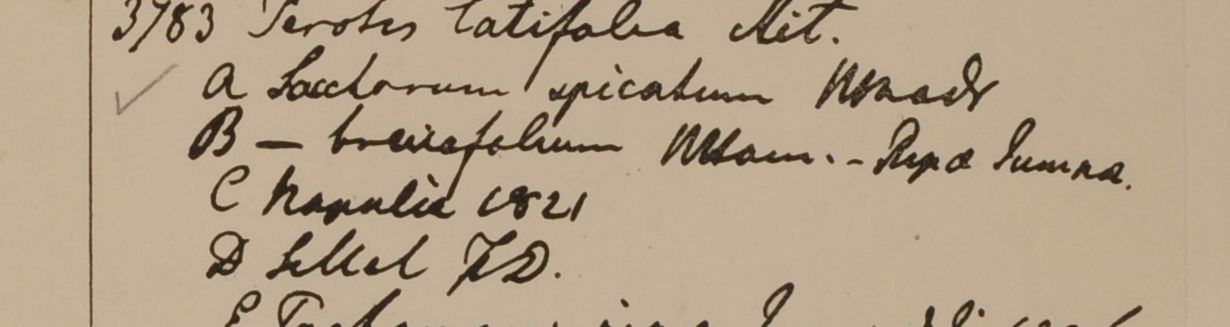 3783 Perotis latifolia Ait.
A Saccharum spicatum
B — brevifolium Ham. - Ripa Jumna.
C Napalia 1821
D Sillet F.D.
E